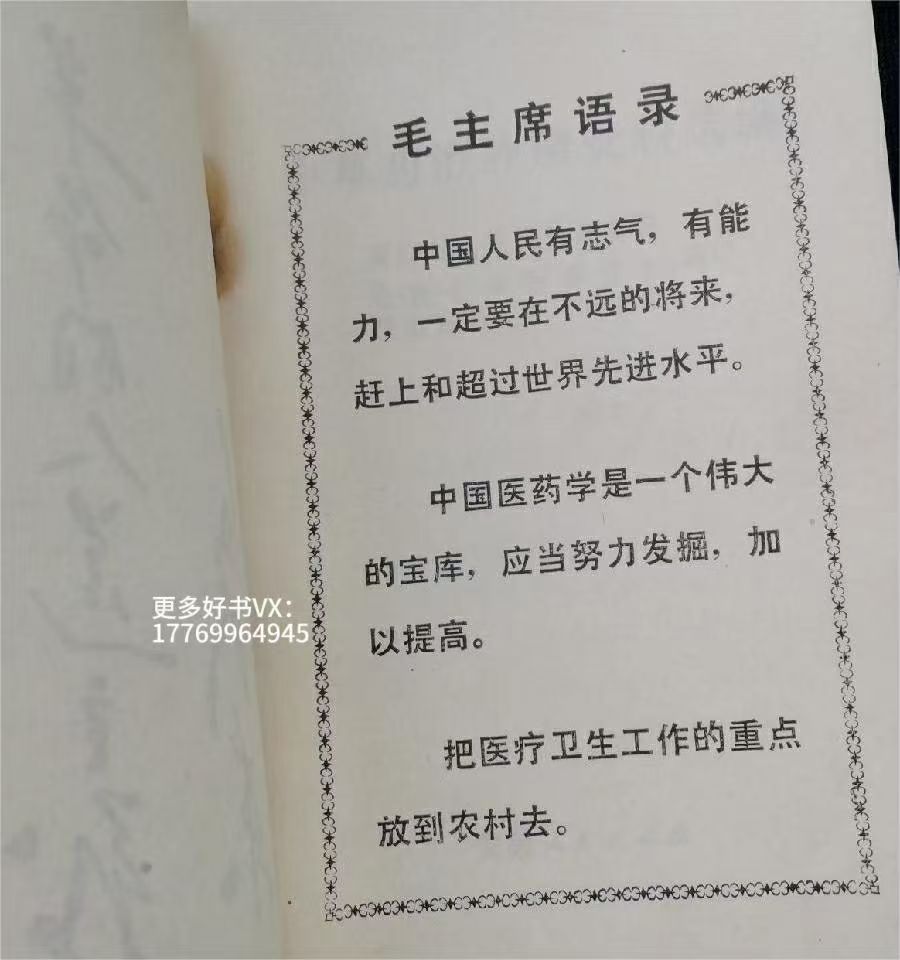 毛主席语录
中国人民有志气，有能
力，一定要在不远的将来，
赶上和超过世界先进水平。
中国医药学是一个伟大
的宝库，应当努力发掘，加
以提高。
把医疗卫生工作的重点
放到农村去。
更多好书VX：
17769964945